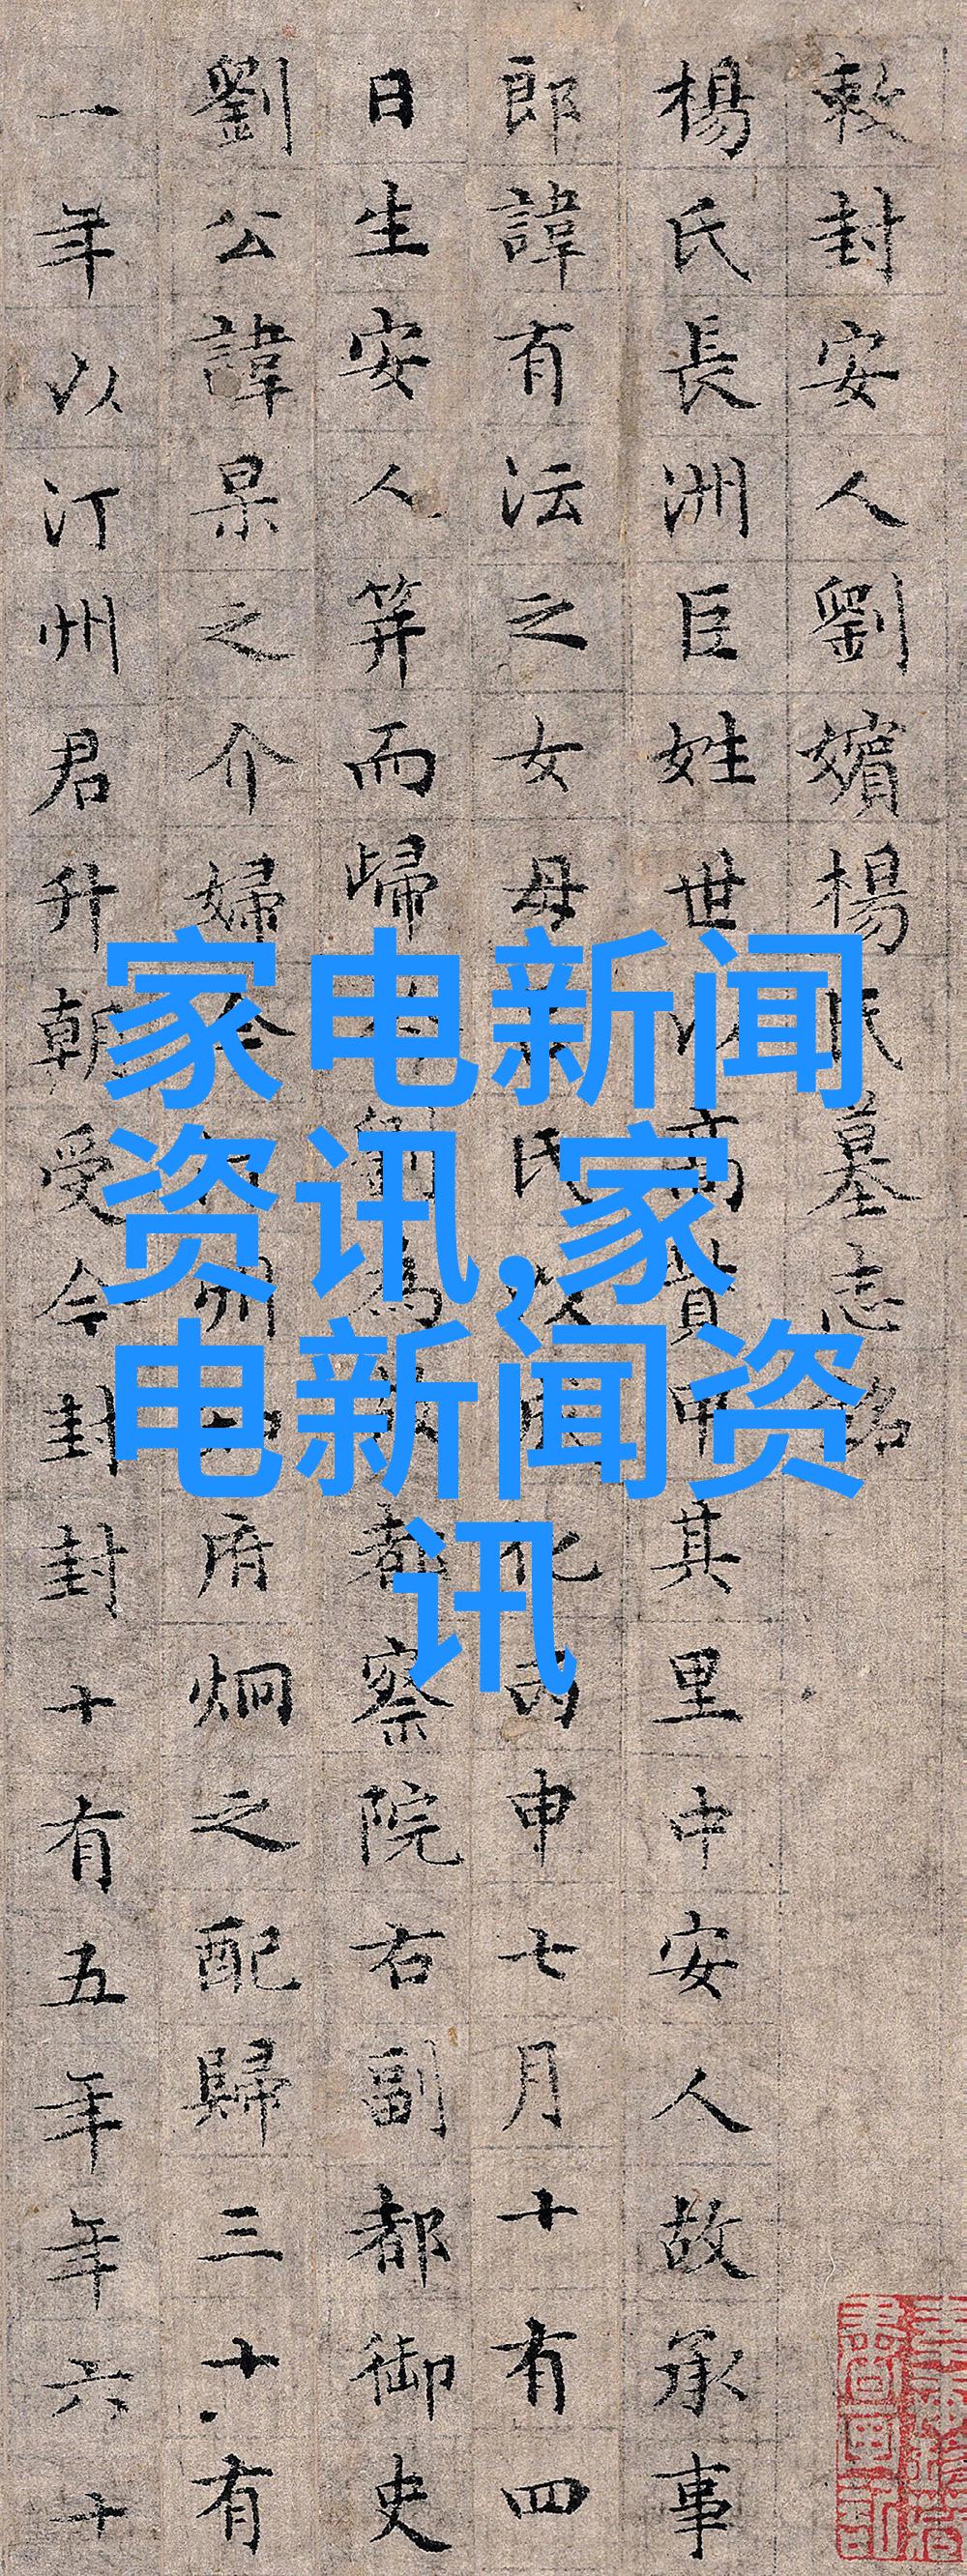 敕封安人劉嬪楊氏墓志銘
楊氏長洲巨姓世以高貲甲其里中安人故承事
郎諱有沄之女母氏以成化丙申七月十有四
日生安人笄而歸劉為故都察院右副都御史
劉公諱杲之介婦今汀州知府炯之配歸三十有
一年以汀州君升朝受今封封十有五年年六十
家电新闻
资讯,家
电新闻资
讯